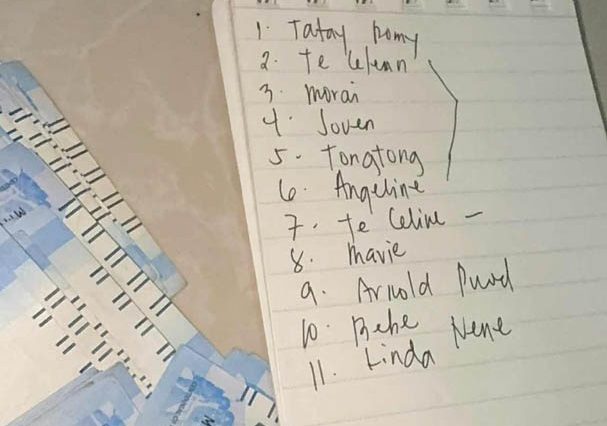 1. Tatay Romy
2. Te Lelean
3. Morai
4. Joven
5. Tongtong
6. Angeline
7. Te Celine -
8. Mavie
9. Arnold
10. Bebe Nene
11. Linda